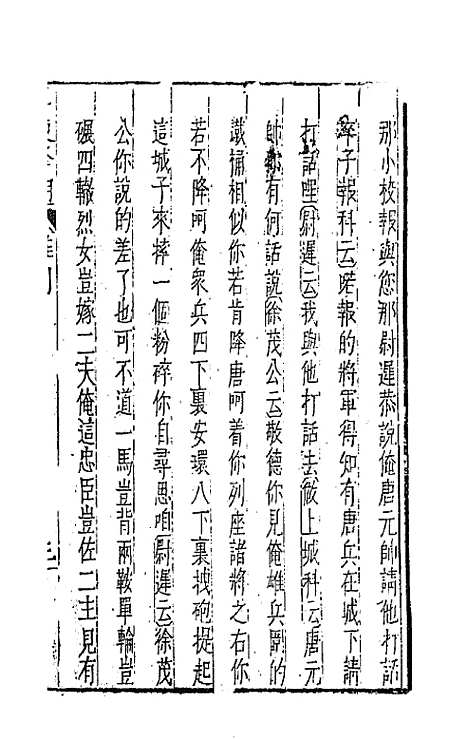 那小校報與您那尉遲恭說俺唐元帥請他打話
卒子報科云喏報的將軍得知有唐兵在城下請
打話哩尉遲云我與他打話去做上城科云唐元
帥你有何話說徐茂公云敬德你見俺雄兵圍的
鐵桶相似你若肯降唐呵着你列座諸將之右你
若不降呵俺衆兵四下裏安環八下裏拽砲提起
這城子來摔一個粉碎你自尋思咱尉遲云徐茂
公你說的差了也可不道一馬豈背兩鞍單輪豈
碾四轍烈女豈嫁二夫俺這忠臣豈佐二主見有